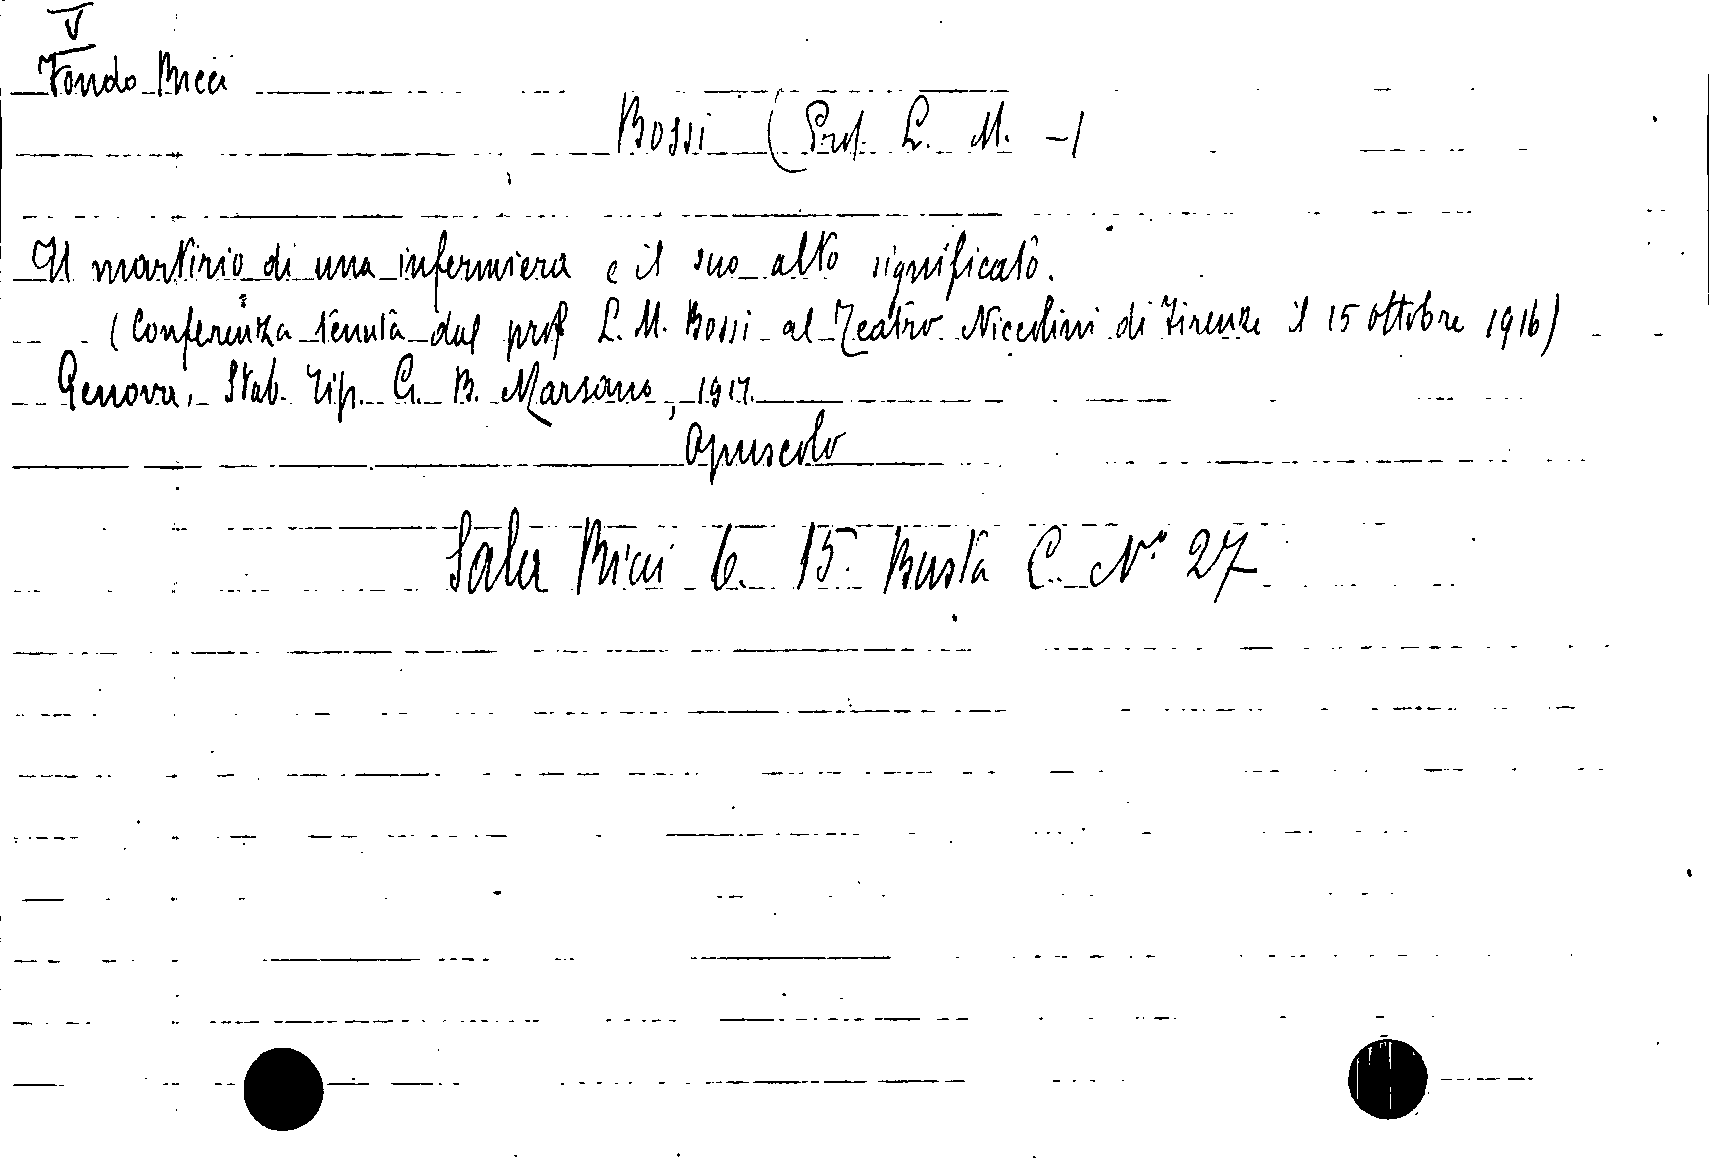 V
Fondo Ricci
Bossi (Prof. L. M. -)
Il martirio di una infermiera e il suo alto significato.
(Conferenza tenuta dal prof L. M. Bossi al Teatro Niccolini di Firenze il 15 ottobre 1916)
Genova, Stab. Tip. G. B. Marsano, 1917.
opuscolo
Sala Ricci 6. 15. Busta C. N.º 27